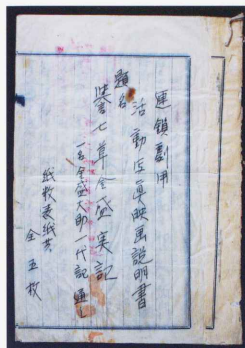 連鎖劇用
活動写真映画説明書
題名
七草金盛実記
一名金盛大助一代記 通し
紙数表紙共
全五枚